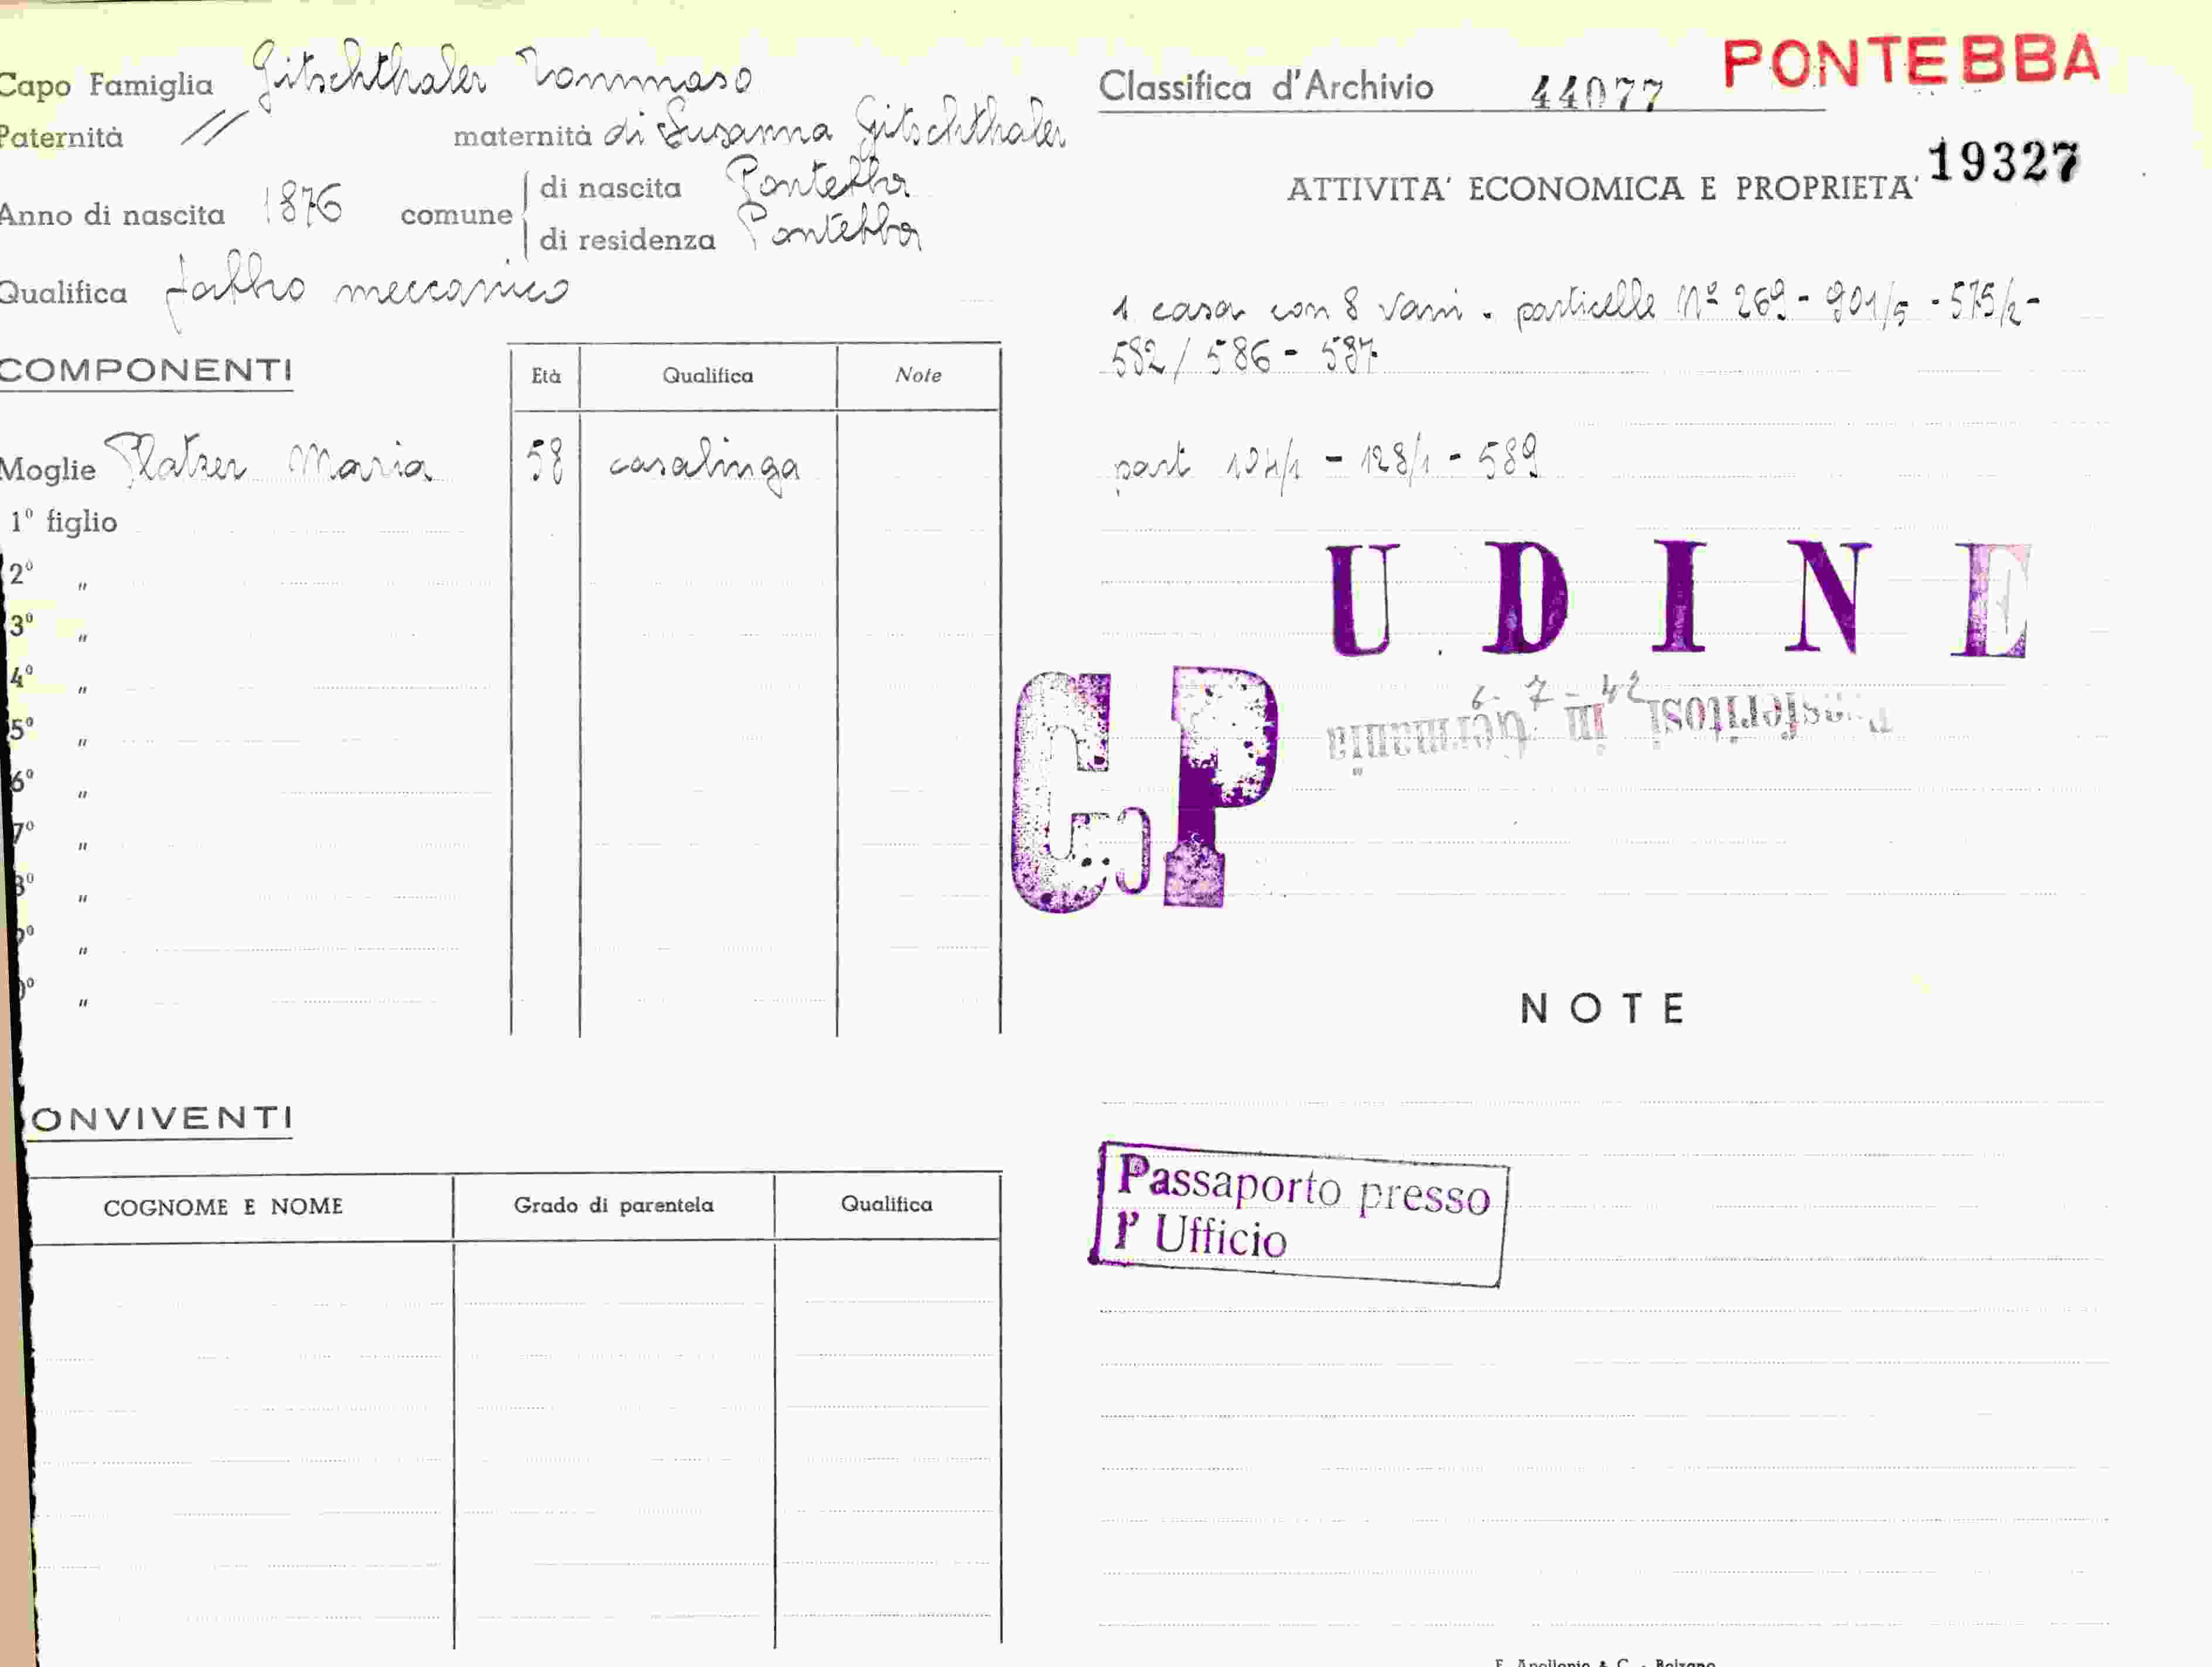 Capo Famiglia Gitschthaler Tommaso
Paternità // maternità di Susanna Gitschthaler
Anno di nascita 1876 comune di nascita Pontebba
di residenza Pontebba
Qualifica fabbro meccanico
COMPONENTI Età Qualifica Note
Moglie Platzer Maria 58 casalinga
1º figlio
2º "
3º "
4º "
5º "
6º "
7º "
8º "
9º "
0º "
ONVIVENTI
COGNOME E NOME Grado di parentela Qualifica
Classifica d'Archivio 44077 PONTEBBA
19327
ATTIVITA' ECONOMICA E PROPRIETA'
1 casa con 8 vani - particelle Nº 269 - 901/5 - 575/2 -
582 / 586 - 587
part 104/1 - 128/1 - 589
UDINE
6-7-42
Trasferitosi in Germania
C.P
NOTE
Passaporto presso
l' Ufficio
F. Apollonio & C. - Bolzano